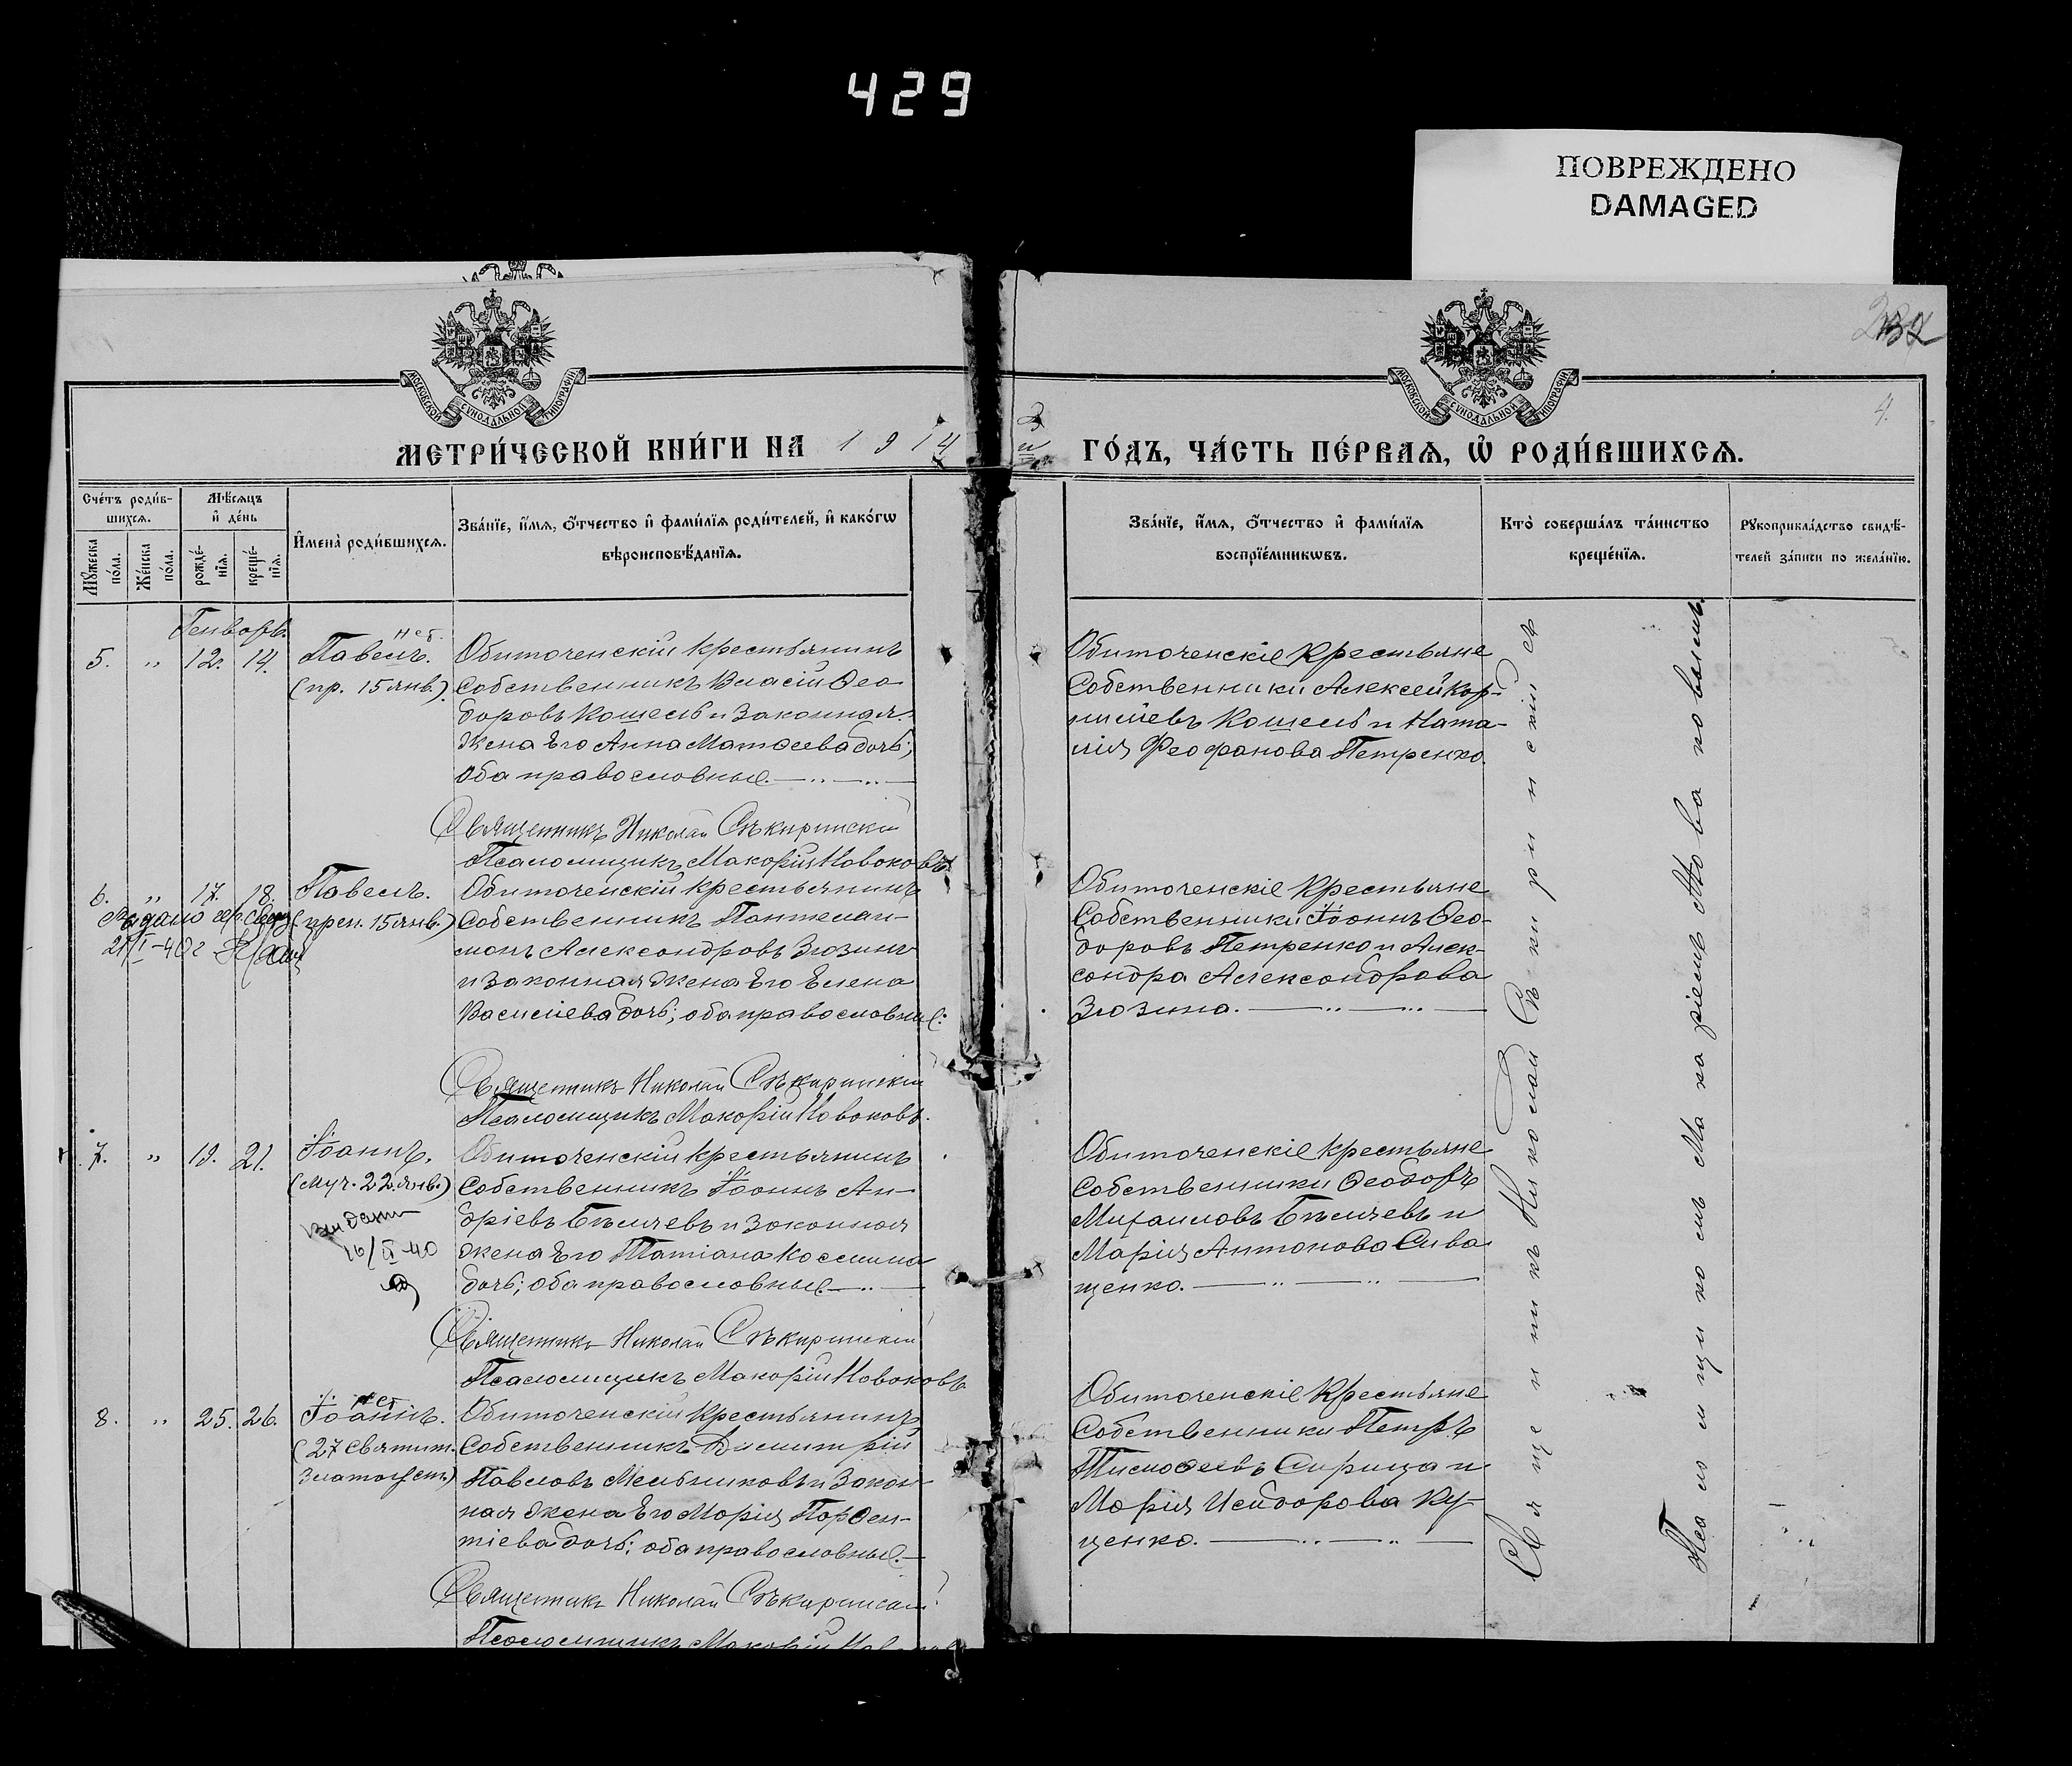 429
ПОВРЕЖДЕНО
DAMAGED
МОСКОВСКОЙ СѴНОДАЛЬНОЙ ТИПОГРАФІИ
МОСКОВСКОЙ СѴНОДАЛЬНОЙ ТИПОГРАФІИ
4.
МЕТРИ́ЧЕСКОЙ КНИ́ГИ НА 1914
ГО́ДЪ, ЧА́СТЬ ПЕ́РВАѦ, Ѡ҆ РОДИ́ВШИХСѦ.
Сче́тъ роди́в-
шихсѧ.
Мꙋ́жеска по́ла.
Же́нска по́ла.
Мѣ́сѧцъ
и҆ де́нь
рожде́-
нїѧ.
креще́-
нїѧ.
И҆мена̀ роди́вшихсѧ.
Зва́нїе, и҆́мѧ, ѻ҆́тчество и҆ фами́лїѧ роди́телей, и҆ како́гѡ
вѣроисповѣ́данїѧ.
Зва́нїе, и҆́мѧ, ѻ҆́тчество и҆ фами́лїѧ
воспрїе́мникѡвъ.
Кто̀ соверша́лъ та́инство
креще́нїѧ.
Рꙋкоприкла́дство свидѣ́-
телей за́писи по жела́нїю.
Генварь.
5. „ 12. 14.
Павелъ.
(пр. 15 янв.)
Обиточенскій крестьянинъ
собственникъ Власій Ѳео-
доровъ Кошель и законная
жена его Анна Матѳеева дочь;
оба православные.
Священникъ Николай Сѣкиринскій
Псаломщикъ Макарій Новаковъ
Обиточенскіе крестьяне
собственники Алексей Кор-
нилиевъ Кошель и Ната-
лія Феофанова Петренко.
6. „ 17. 18.
Павелъ.
(преп. 15 янв.)
Обиточенскій крестьянинъ
собственникъ Пантелеи-
монъ Александровъ Зюзинъ
и законная жена его Елена
Василіева дочь; оба православные.
Священникъ Николай Сѣкиринскій
Псаломщикъ Макарій Новаковъ.
Обиточенскіе крестьяне
собственники Іоаннъ Ѳео-
доровъ Петренко и Алек-
сандра Александрова
Зюзина.
7. „ 19. 21.
Іоаннъ.
(муч. 22 янв.)
16/II-40
Обиточенскій крестьянинъ
собственникъ Іоаннъ Ан-
дріевъ Бѣличевъ и законная
жена его Татіана Космина
дочь; оба православные.
Священникъ Николай Сѣкиринскій
Псаломщикъ Макарій Новаковъ
Обиточенскіе крестьяне
собственники Ѳеодоръ
Михаиловъ Бѣличевъ и
Марія Антонова Сива-
щенко.
8. „ 25. 26.
Іоаннъ.
(27 Святит.
Златоуст.)
Обиточенскій крестьянинъ
собственникъ Димитрій
Павловъ Мельниковъ и закон-
ная жена его Марія Парѳен-
тіева дочь; оба православные.
Священникъ Николай Сѣкиринскій
Псаломщикъ Макарій
Обиточенскіе крестьяне
собственники Петръ
Тимоѳеевъ Сирица и
Марія Исидорова Ку-
ценко.
Священникъ Николай Сѣкиринскій съ
Псаломщикомъ Макаріемъ Новаковымъ.